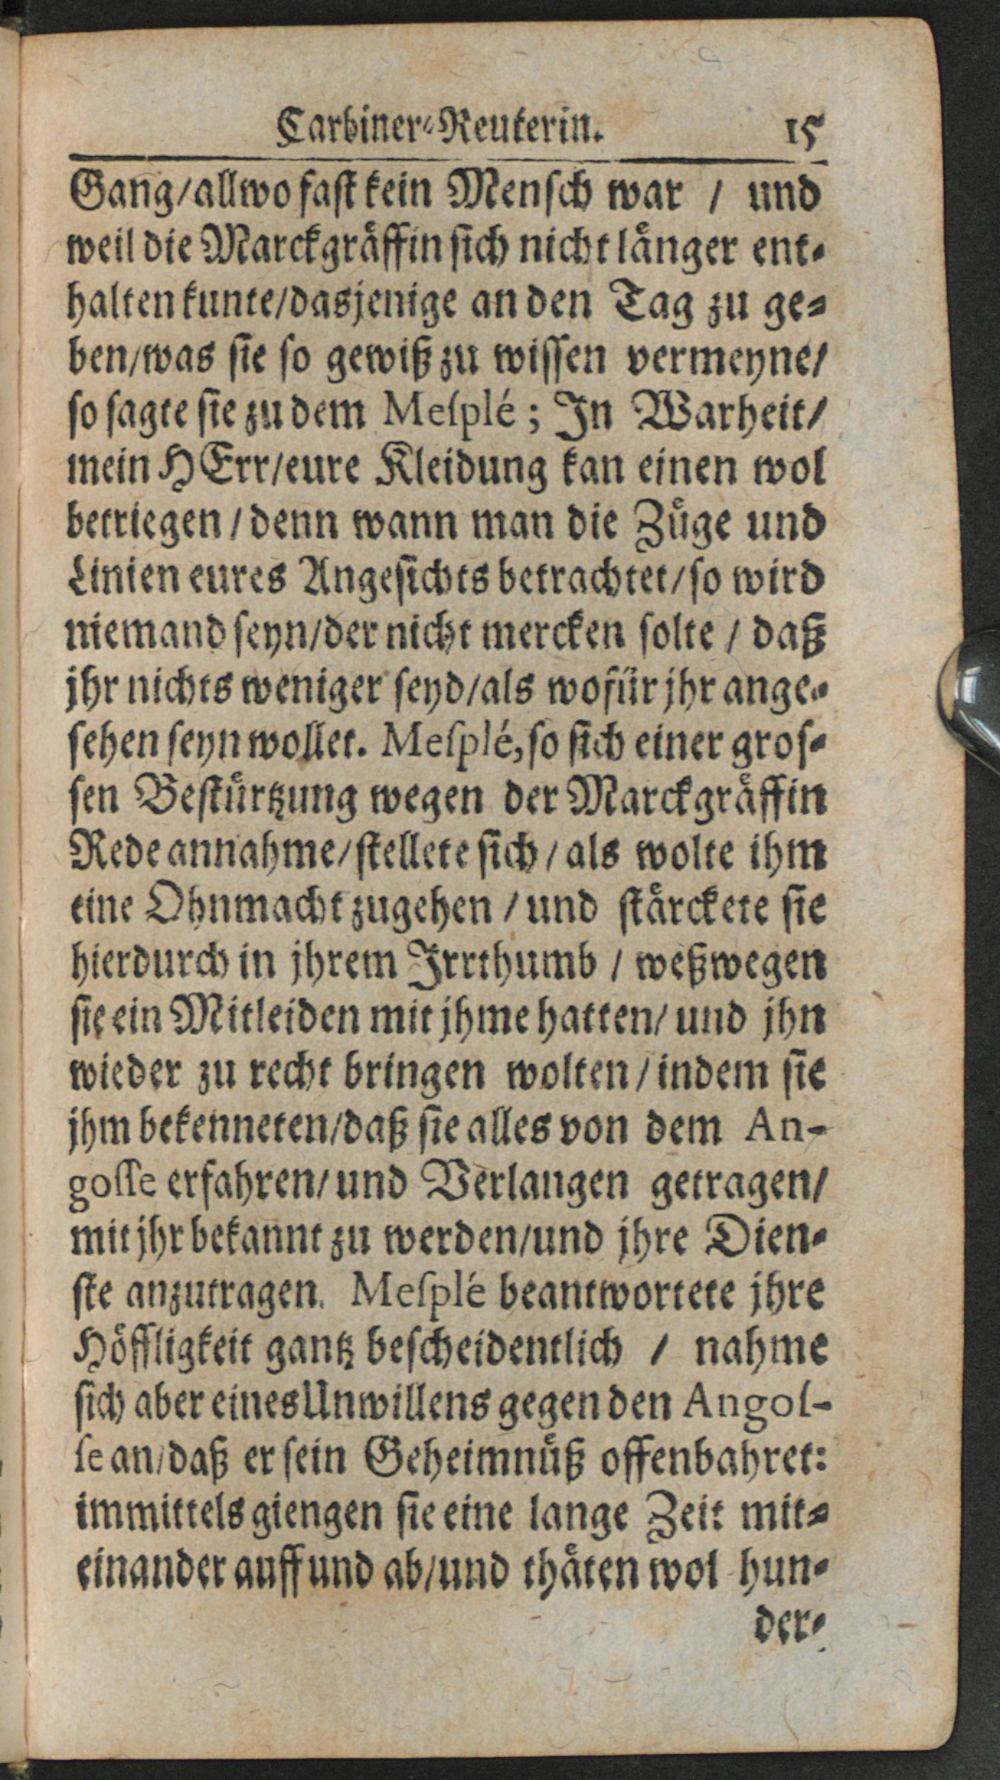 Carbiner-Reuterin. 15
Gang/allwo fast kein Mensch war / und
weil die Marckgräffin sich nicht länger ent-
halten kunte/dasjenige an den Tag zu ge-
ben/was sie so gewiß zu wissen vermeyne/
so sagte sie zu dem Mesplé; In Warheit/
mein HErr/eure Kleidung kan einen wol
betriegen / denn wann man die Züge und
Linien eures Angesichts betrachtet/so wird
niemand seyn/der nicht mercken solte / daß
jhr nichts weniger seyd/als wofür jhr ange-
sehen seyn wollet. Mesplé, so sich einer gros-
sen Bestürtzung wegen der Marckgräffin
Rede annahme/stellete sich / als wolte ihm
eine Ohnmacht zugehen / und stärckete sie
hierdurch in jhrem Irrthumb / weßwegen
sie ein Mitleiden mit jhme hatten/ und jhn
wieder zu recht bringen wolten / indem sie
jhm bekenneten/daß sie alles von dem An-
gosse erfahren/ und Verlangen getragen/
mit jhr bekannt zu werden/und jhre Dien-
ste anzutragen. Mesplé beantwortete jhre
Höffligkeit gantz bescheidentlich / nahme
sich aber eines Unwillens gegen den Angos-
se an/daß er sein Geheimnüß offenbahret:
immittels giengen sie eine lange Zeit mit-
einander auff und ab/und thäten wol hun-
der-